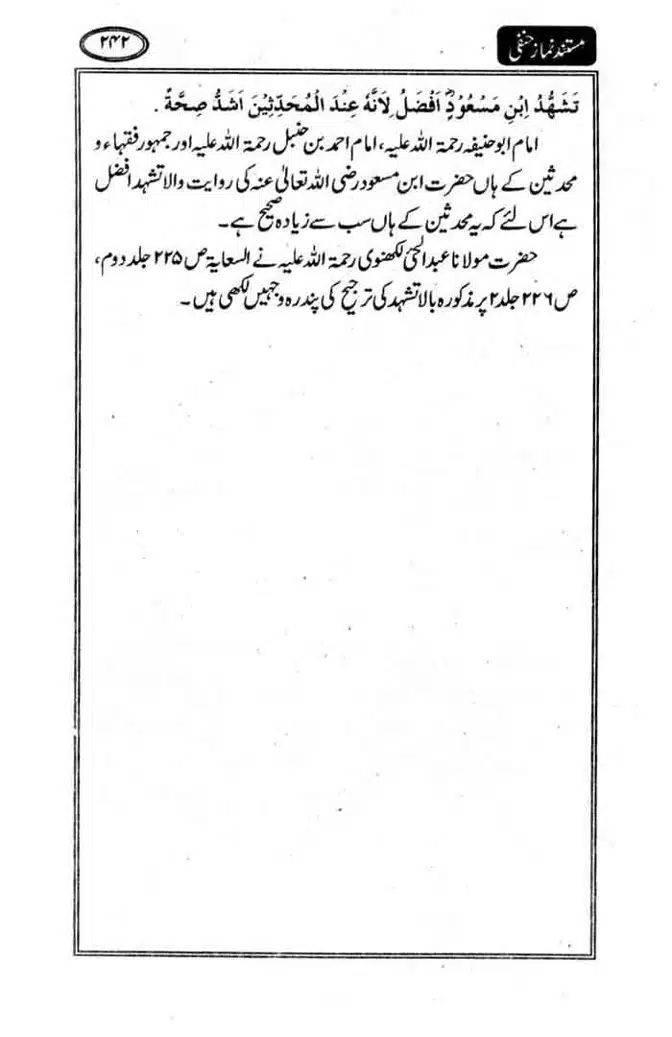 مستند نماز حنفی
۲۴۲
تَشَهُّدُ اِبْنِ مَسْعُوْدٍؓ اَفْضَلُ لِاَنَّهٗ عِنْدَ الْمُحَدِّثِيْنَ اَشَدُّ صِحَّةً .
امام ابو حنیفہ رحمۃ اللہ علیہ، امام احمد بن حنبل رحمۃ اللہ علیہ اور جمہور فقہاء و
محدثین کے ہاں حضرت ابن مسعود رضی اللہ تعالیٰ عنہ کی روایت والا تشہد افضل
ہے اس لئے کہ یہ محدثین کے ہاں سب سے زیادہ صحیح ہے۔
حضرت مولانا عبدالحئی لکھنوی رحمۃ اللہ علیہ نے السعایۃ ص ۲۲۵ جلد دوم،
ص ۲۲۶ جلد ۲ پر مذکورہ بالا تشہد کی ترجیح کی پندرہ وجہیں لکھی ہیں۔